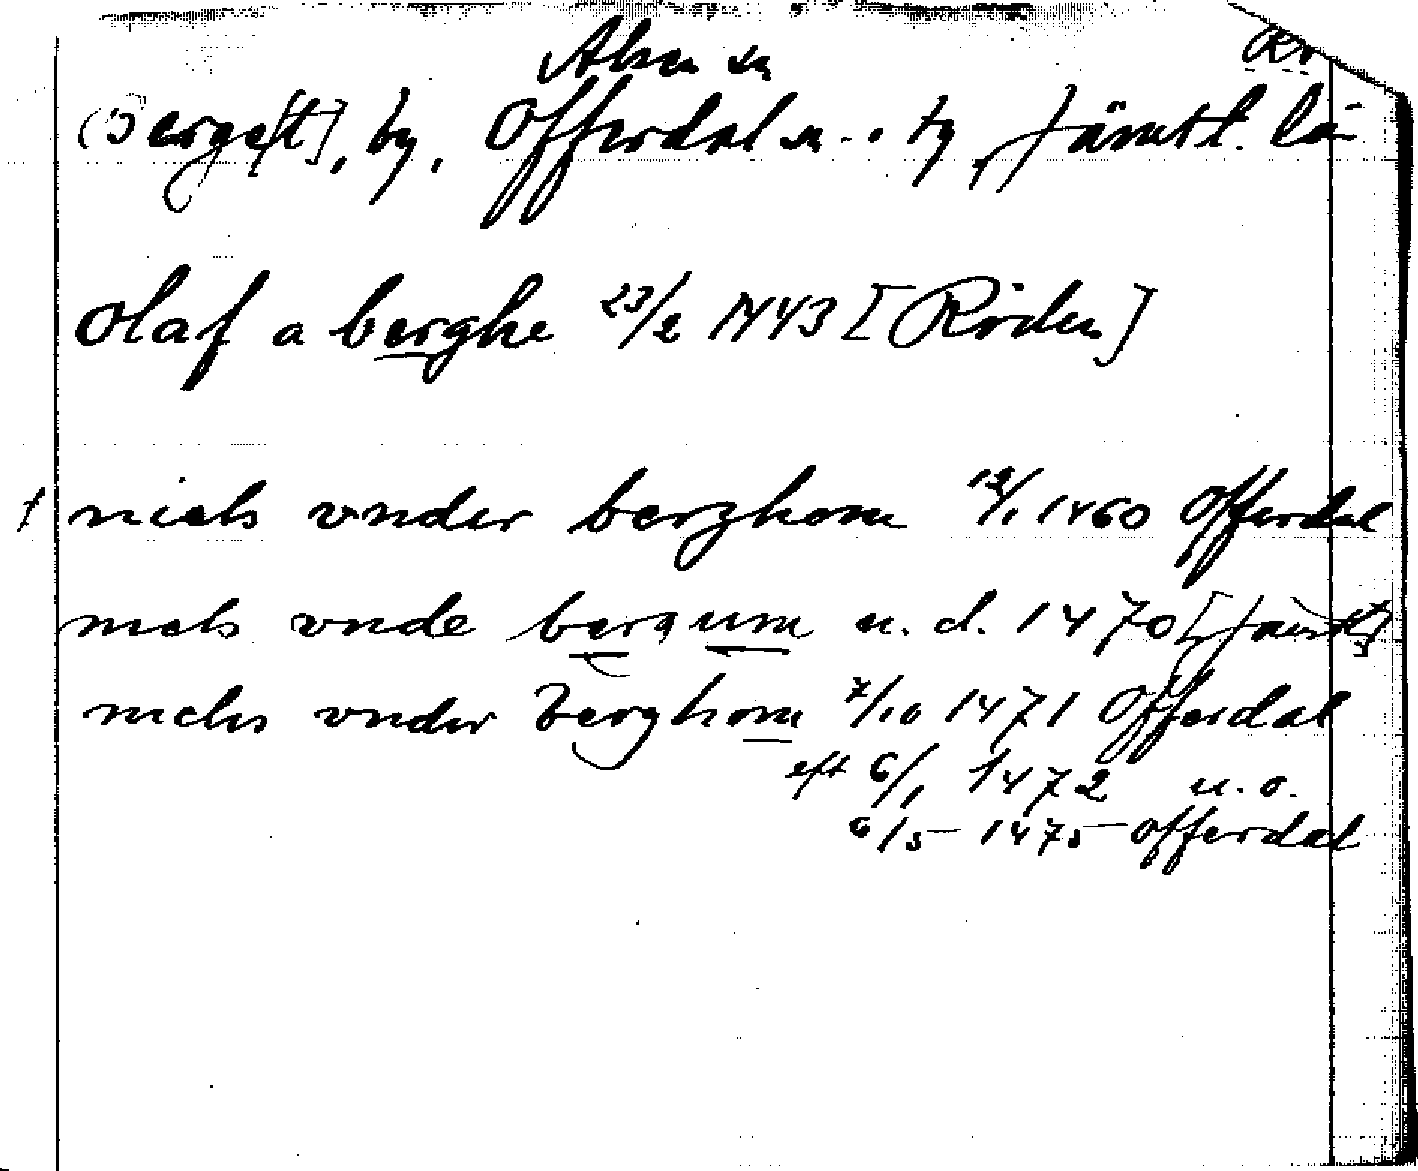 Alsen sn
Berge[t], by, Offerdal sn o. tg, Jämtl. län
Olaf a berghe 23/2 1443 [Röden]
niels vnder berghom 12/1 1460 Offerdal
niels vnde bergum u. d. 1470 [Jämtl]
niels vnder berghom 7/10 1471 Offerdal
eft 6/1 1472 u. o.
6/5 1475 Offerdal